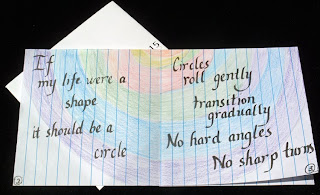 If
my life were a
shape
it should be a
circle
2
Circles
roll gently
transition
gradually
No hard angles
No sharp turns
3
15